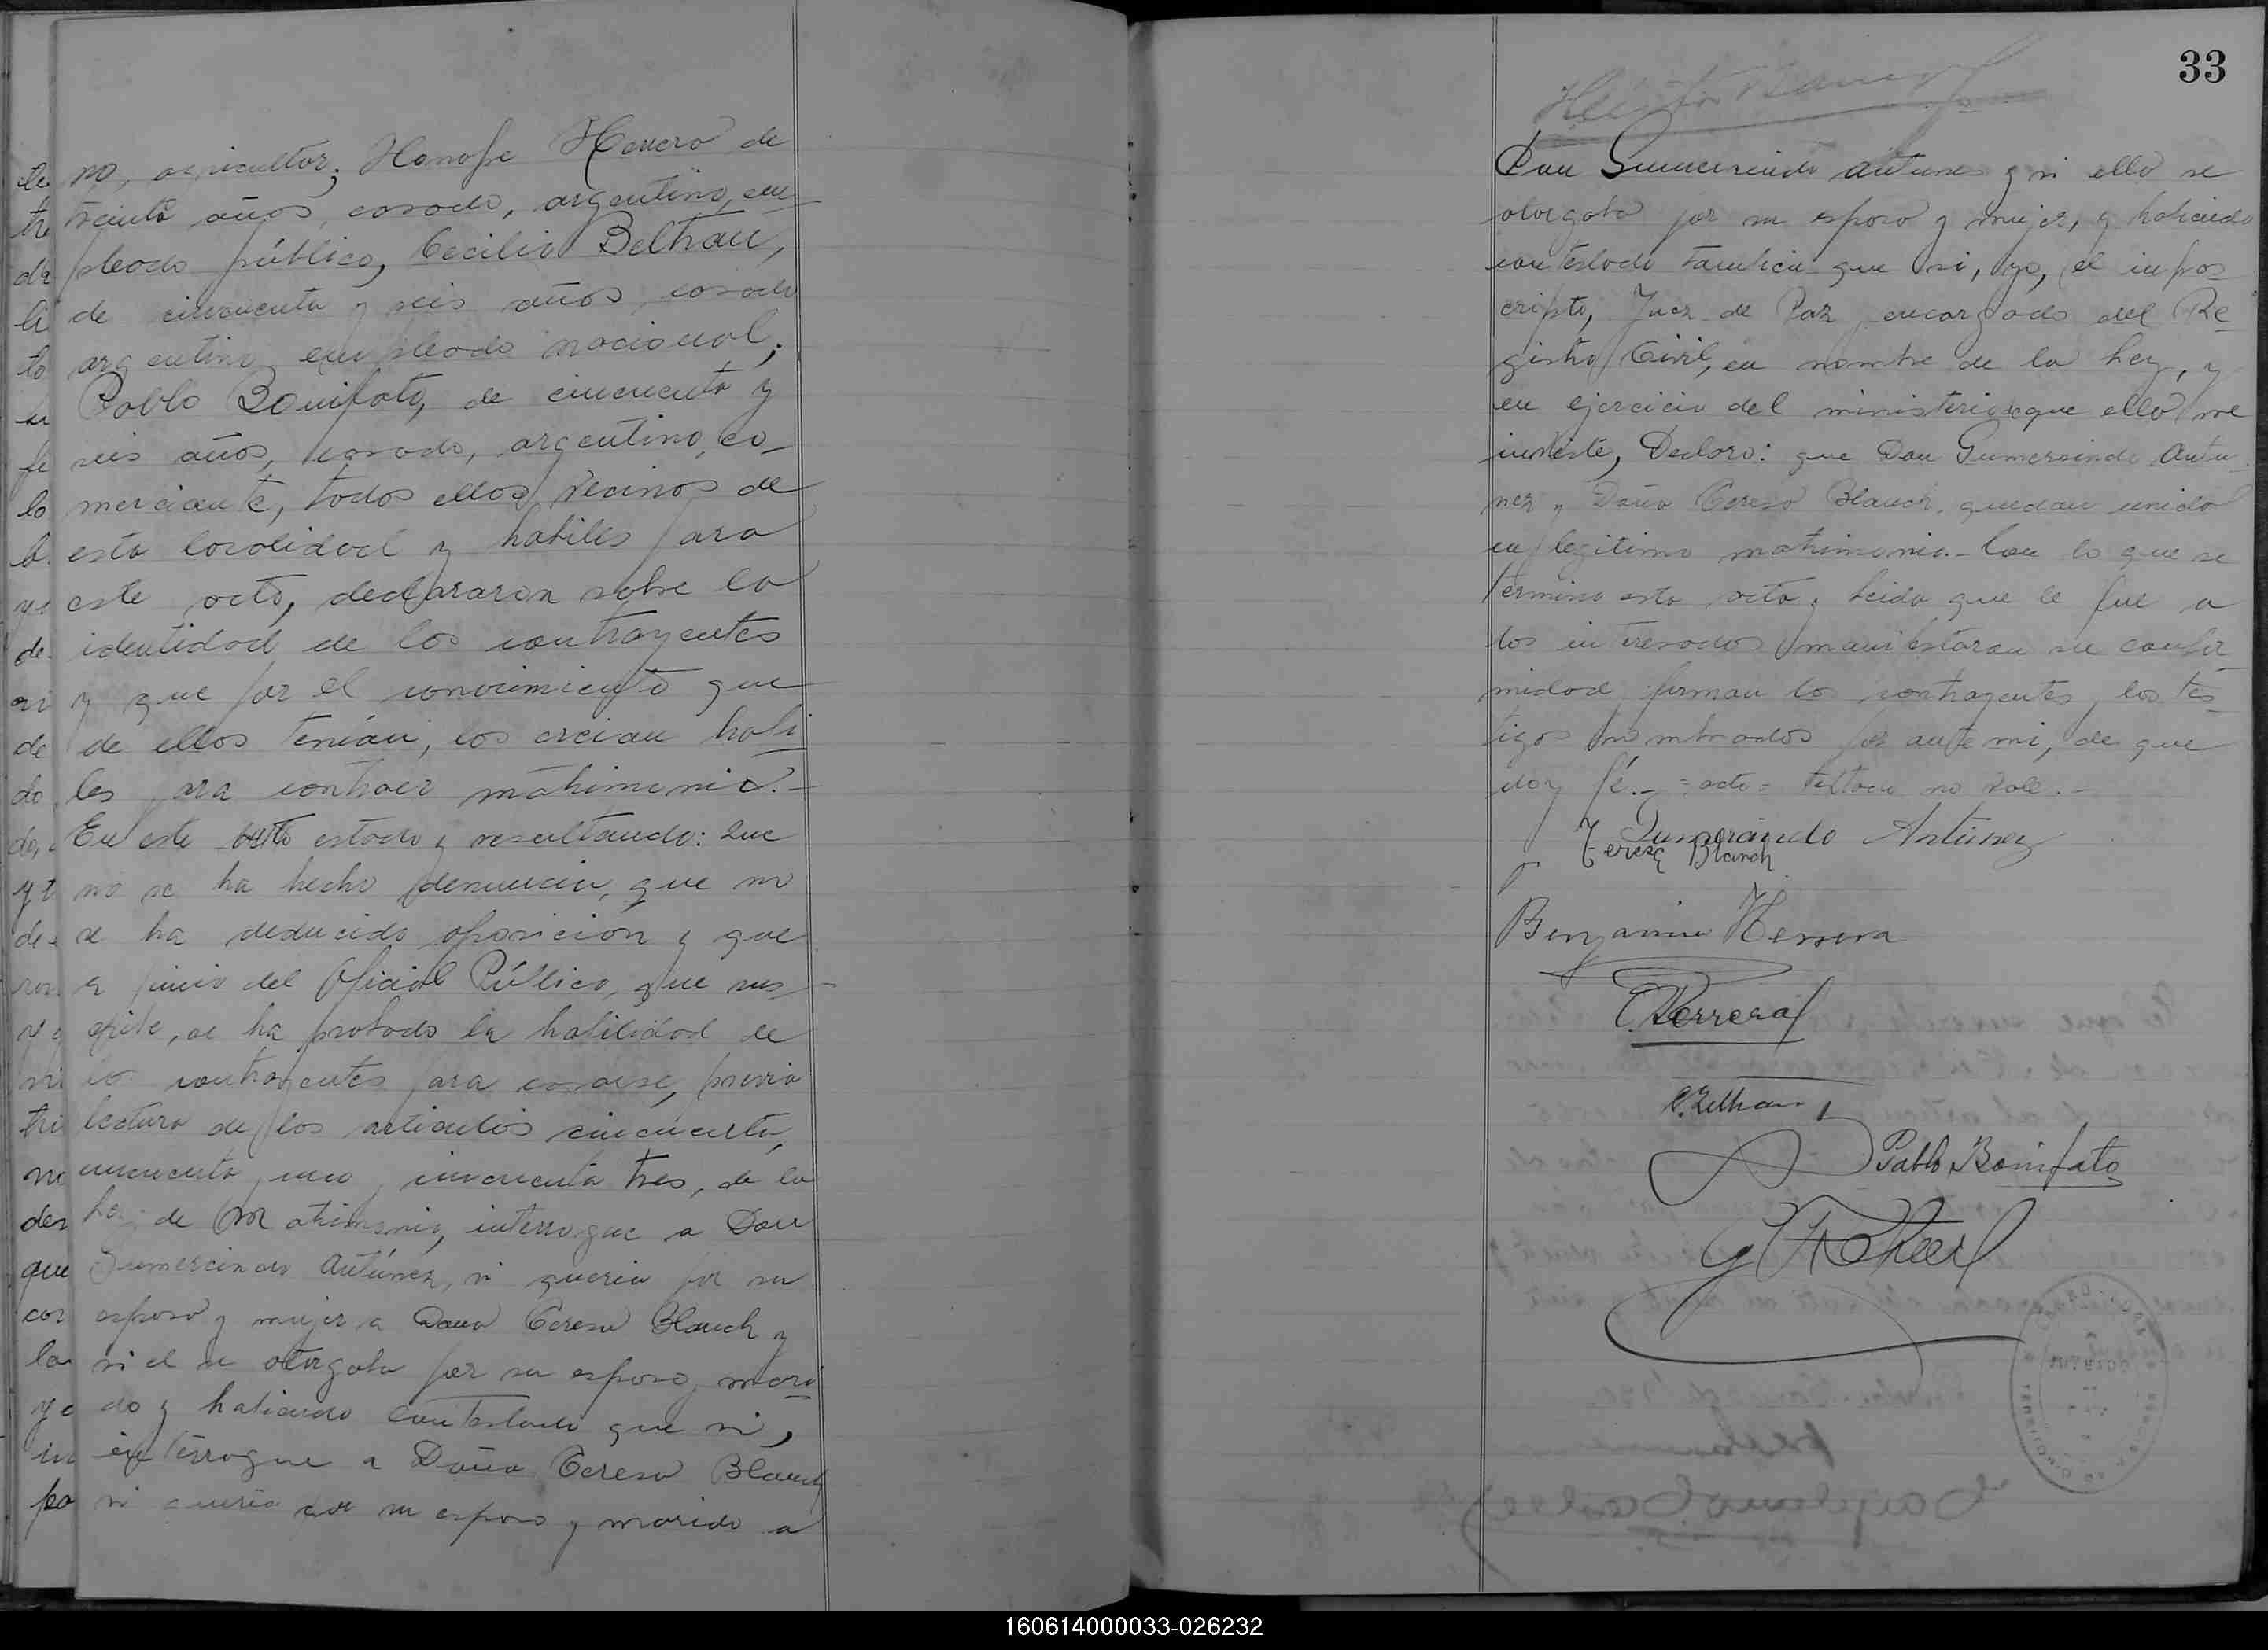 no, agricultor; Herrera de
treinta años, casado, argentino, em-
pleado público, Cecilio Beltrán,
de cincuenta y seis años, casado
argentino, empleado nacional;
Pablo Bonifato, de cincuenta y
seis años, casado, argentino, co-
merciante, todos ellos vecinos de
esta localidad y habiles para
este acto, declararon sobre la
identidad de los contrayentes
y que por el conocimiento que
de ellos tenían, los creian habi-
les para contraer matrimonio.-
En este acto estado y resultando: Que
no se ha hecho denuncia, que no
se ha deducido oposición y que
a juicio del Oficial Público, que sus-
cribe, se ha probado la habilidad de
los contrayentes para casarse, previa
lectura de los articulos cincuenta,
cincuenta uno y cincuenta tres, de la
Ley de Matrimonio, interrogue a Don
Gumersindo Antúnez, si queria por su
esposa y mujer a Doña Teresa Blanch y
si el se otorgaba por su esposo y mari-
do y habiendo contestado que si,
interrogue a Doña Teresa Blanch
si queria por su esposo y marido a
te
tre
de
li
to
fe
lo
de
de
do
do,
de-
tri
no
der
que
cor
la
in
pa
33
Don Gumersindo Antunes y si ella se
otorgaba por su esposa y mujer, y habiendo
contestado tambien que si, yo, el infras-
cripto, Juez de Paz, encargado del Re-
gistro Civil, en nombre de la ley, y
en ejercicio del ministerio que ella me
inviste, Declaro: que Don Gumersindo Antu-
nez y Doña Teresa Blanch, quedan unidos
en legitimo matrimonio.- Con lo que se
termino esta acta, leida que le fue a
los interesados manifestaron su confor-
midad, firman los contrayentes, los tes-
tigos nombrados por ante mi, de que
doy fé.- =acto= testado no vale.-
Gumersindo Antúnez
Teresa Blanch
Benjamin Herrera
Herrera
C. Beltran
Pablo Bonifato
160614000033-026232